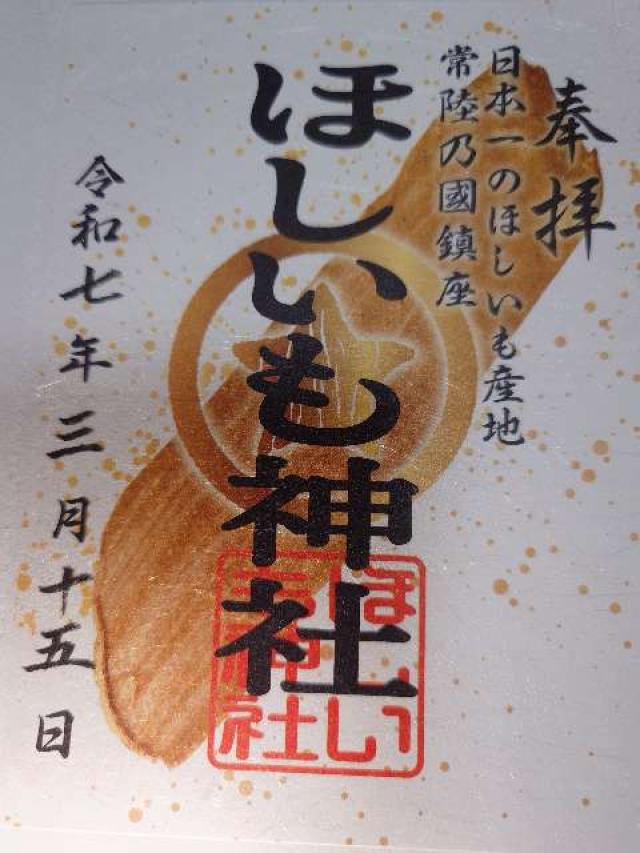 奉拝
日本一のほしいも産地
常陸乃國鎮座
ほしいも神社
令和七年三月十五日
ほしい
も神社